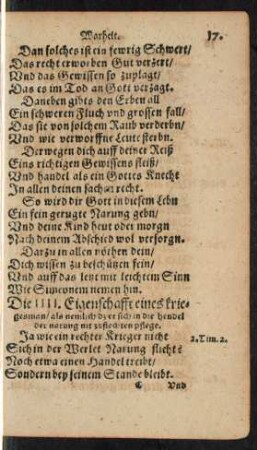 Warheit. 17.
Dan solches ist ein fewrig Schwert/
Das recht erworben Gut verzert/
Vnd das Gewissen so zuplagt/
Das es im Tod an Gott verzagt.
Daneben gibts den Erben all
Ein schweren Fluch vnd grossen fall/
Das sie von solchem Raub verderbn/
Vnd wie verworffne Leute sterbn.
Derwegen dich auff deiner Reiß
Eins richtigen Gewissens fleiß/
Vnd handel als ein Gottes Knecht
In allen deinen sachen recht.
So wird dir Gott in diesem Lebn
Ein fein gerugte Narung gebn/
Vnd deine Kind heut oder morgn
Nach deinem Abschied wol versorgn.
Darzu in allen nöthen dein/
Dich wissen zu beschützen fein/
Vnd auff das letzt mit leichtem Sinn
Wie Simeonem nemen hin.
Die IIII. Eigenschafft eines krie-
gesman/ als nemlich das er sich in die hendel
der narung nit zuflechten pflege.
Ja wie ein rechter Krieger nicht 2. Tim. 2.
Sich in der Werlet Narung flicht:
Noch etwa einen Handel treibt/
Sondern bey seinem Stande bleibt.
C Vnd